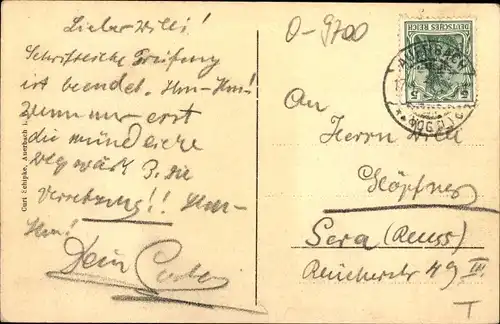 Lieber Willi!
Schriftliche Prüfung
ist beendet. Hm-Hm!
wenn nur erst
die mündliche
weg wär' z. die
Versetzung!! Hm-
Hm!
Dein
Curt Schipke, Auerbach i.
O-9700
DEUTSCHES REICH
5 5
AUERBACH
(VOGTL)
An
Herrn Willi
Höpfner
Gera (Reuss)
49 III
T